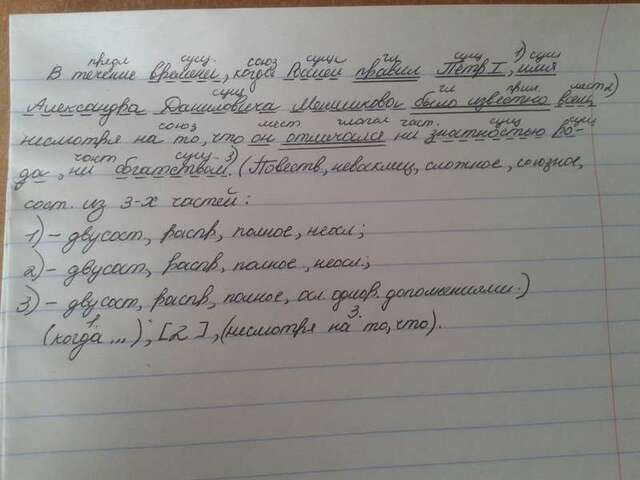 предл сущ. союз сущ. гл сущ 1) сущ
В течение времени, когда Россией правил Пётр I, имя
сущ гл прил. мест 2)
Александра Даниловича Меншикова было известно всем,
союз мест глагол част. сущ сущ
несмотря на то, что он отличался ни знатностью ро-
част сущ. 3)
да, ни богатством. (Повеств, невосклиц, сложное, союзное,
сост. из 3-х частей:
1) – двусост, распр, полное, неосл;
2) – двусост, распр, полное, неосл.;
3) – двусост, распр, полное, осл. однор. дополнениями.)
1. 3.
(когда ...), [2], (несмотря на то, что).